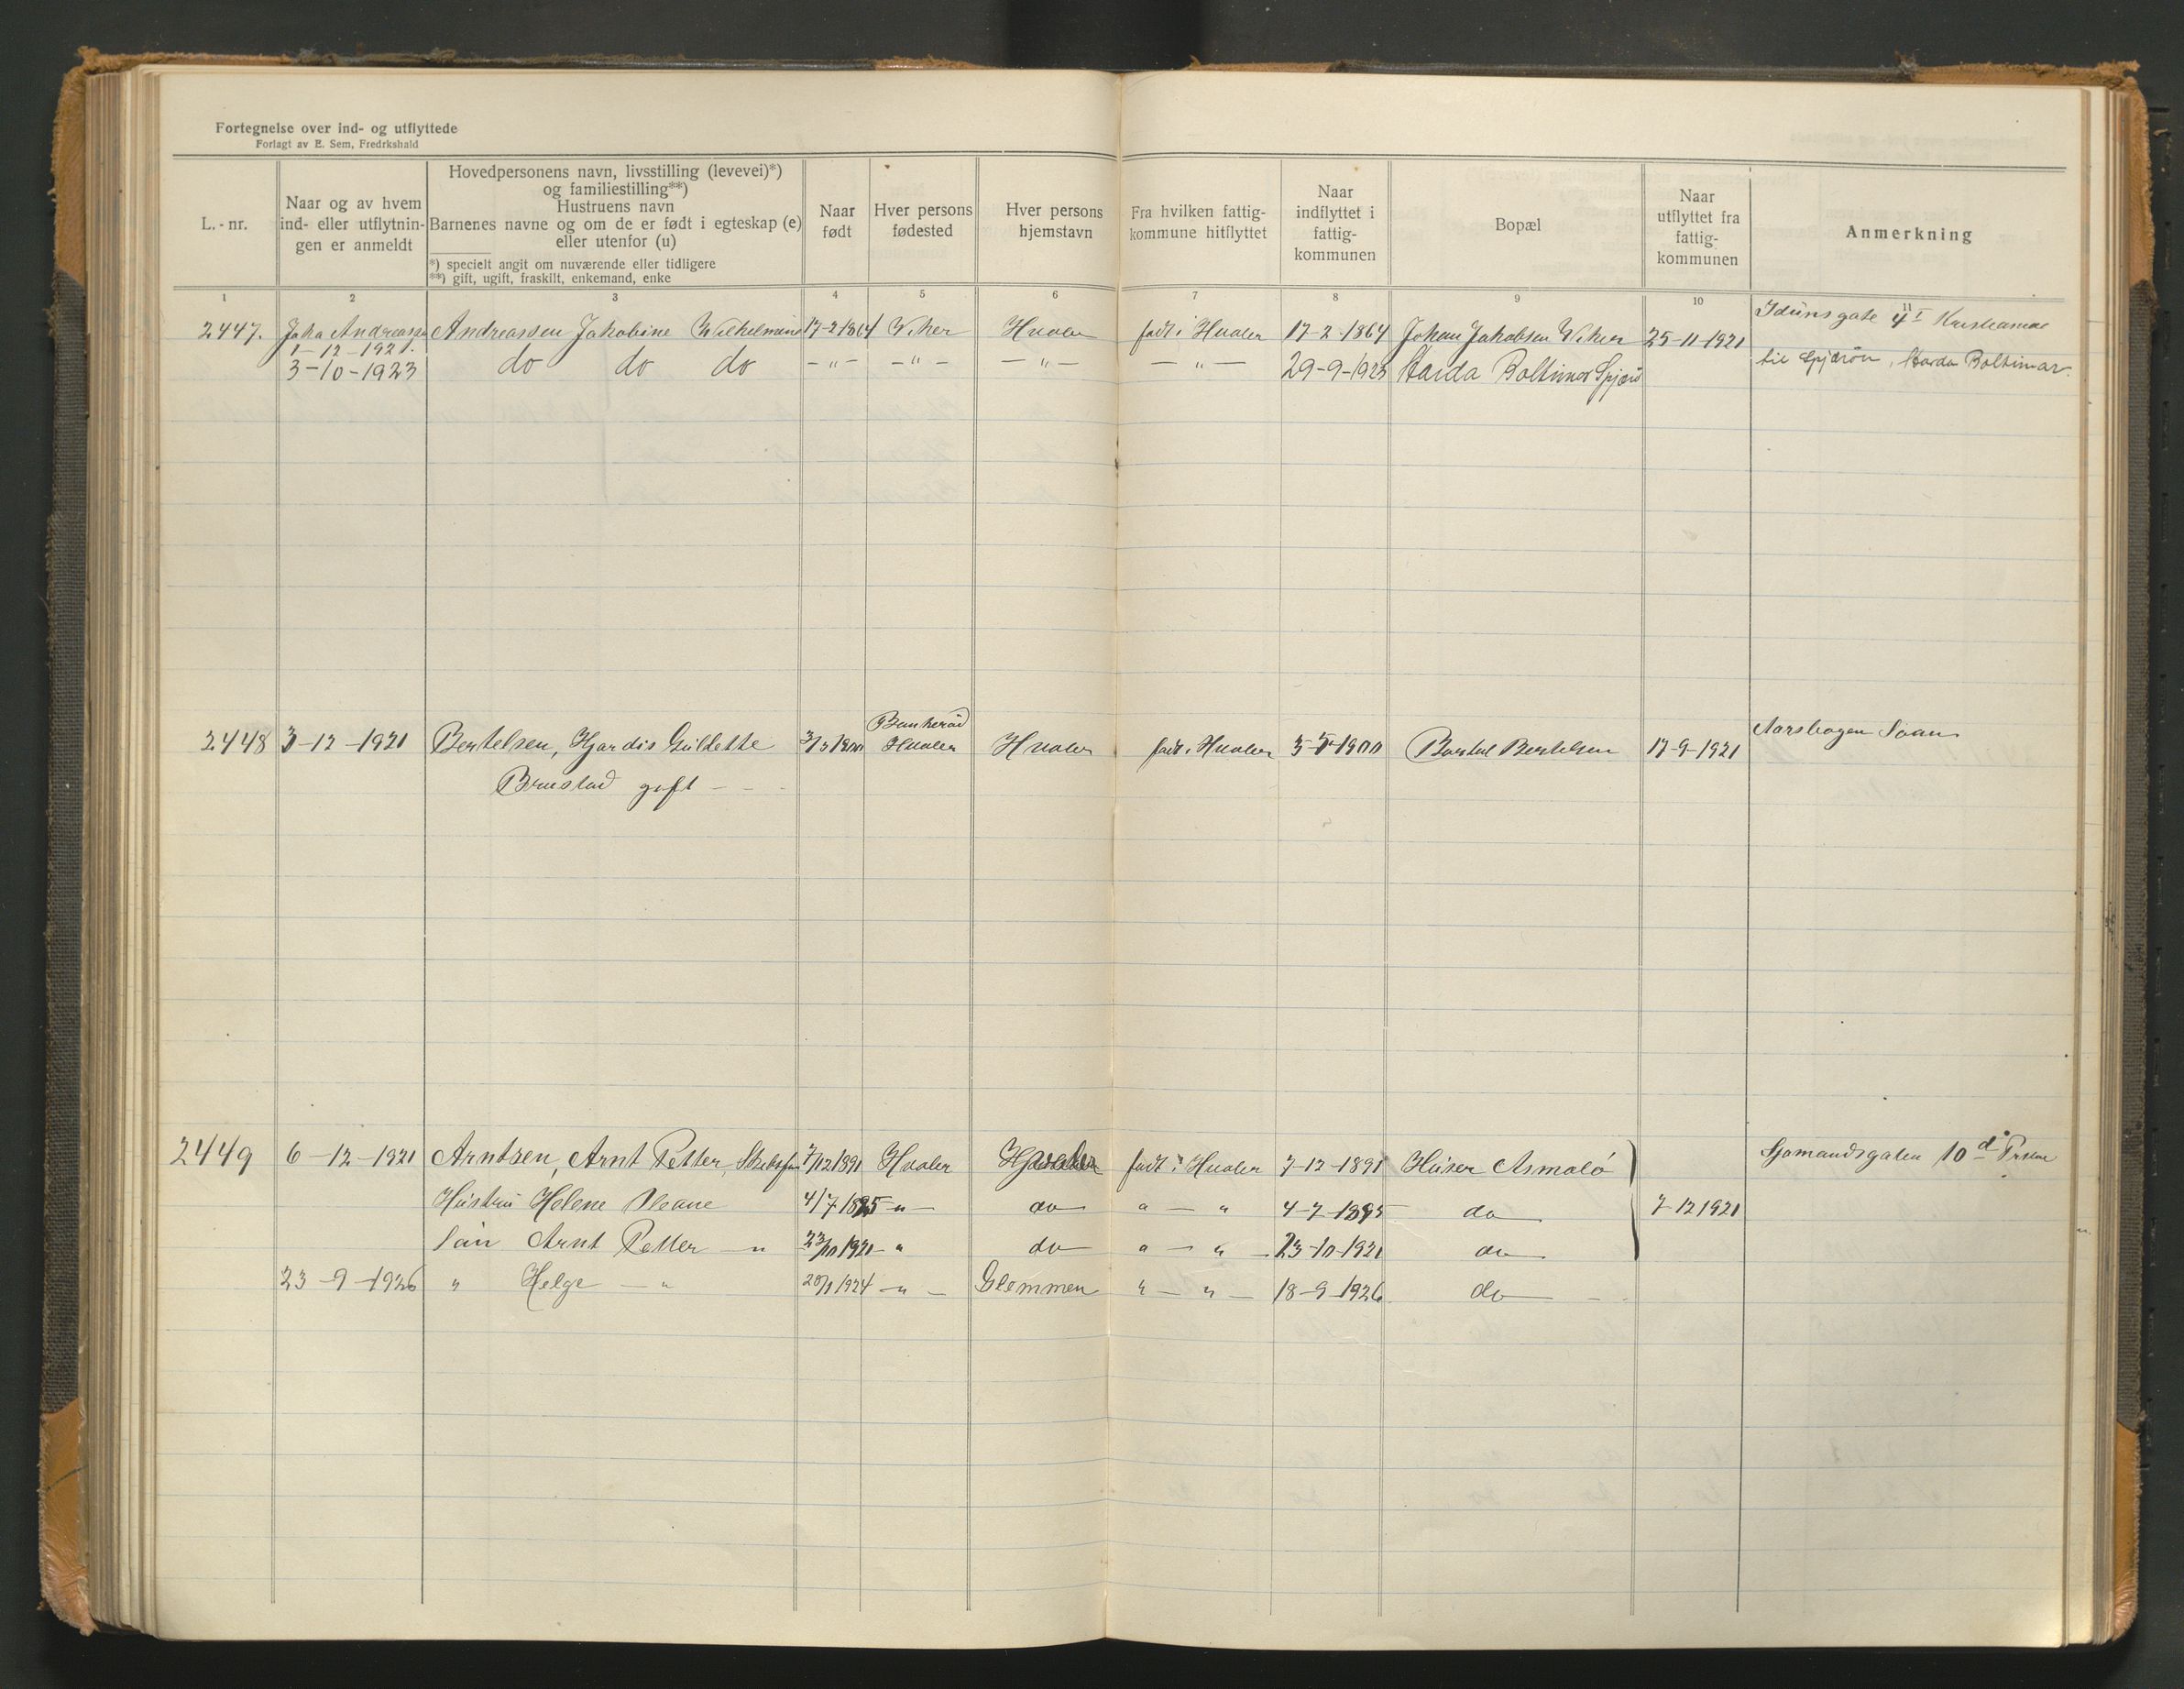 Fortegnelse over ind- og utflyttede
Forlagt av E. Sem, Fredrkshald
L.-nr.
Naar og av hvem ind- eller utflytnin-gen er anmeldt
Hovedpersonens navn, livsstilling (levevei)*)
og familiestilling**)
Hustruens navn
Barnenes navne og om de er født i egteskap (e)
eller utenfor (u)
*) specielt angit om nuværende eller tidligere
**) gift, ugift, fraskilt, enkemand, enke
Naar født
Hver persons fødested
Hver persons hjemstavn
Fra hvilken fattig-kommune hitflyttet
Naar indflyttet i fattig-kommunen
Bopæl
Naar utflyttet fra fattig-kommunen
Anmerkning
1 2 3 4 5 6 7 8 9 10
2447. Andreassen Jakobine Wilhelmine 17-2-1864 Viker Hvaler født i Hvaler 17-2-1864 Johan Jakobsen Viker 25-11-1921 Idunsgate 4 II
1-12-1921.
3-10-1923 do do do -"- -"- -"- -"- 29-9-1923 Boltimor Spjærø til Spjærøn, Boltimar.
2448 3-12-1921 Bertelsen, Hjørdis 3/5 1900 Hvaler Hvaler født i Hvaler 3-5-1900 Bertelsen 17-9-1921
Brustad gift - - -
2449 6-12-1921 Arntzen, Arnt Petter, 7/12 1891 Hvaler Hvaler født i Hvaler 7-12-1891 Huser Asmalø Sjømandsgaten 10 d
Hustru Helene 4/7 1895 -"- do " - " 4-7-1895 do 7-12 1921
Søn Arnt Petter -"- 23/10 1921 -"- do " - " - 23-10-1921 do
23-9-1926 " Helge -"- 20/1 1924 -"- Glemmen " - " - 18-9-1926 do